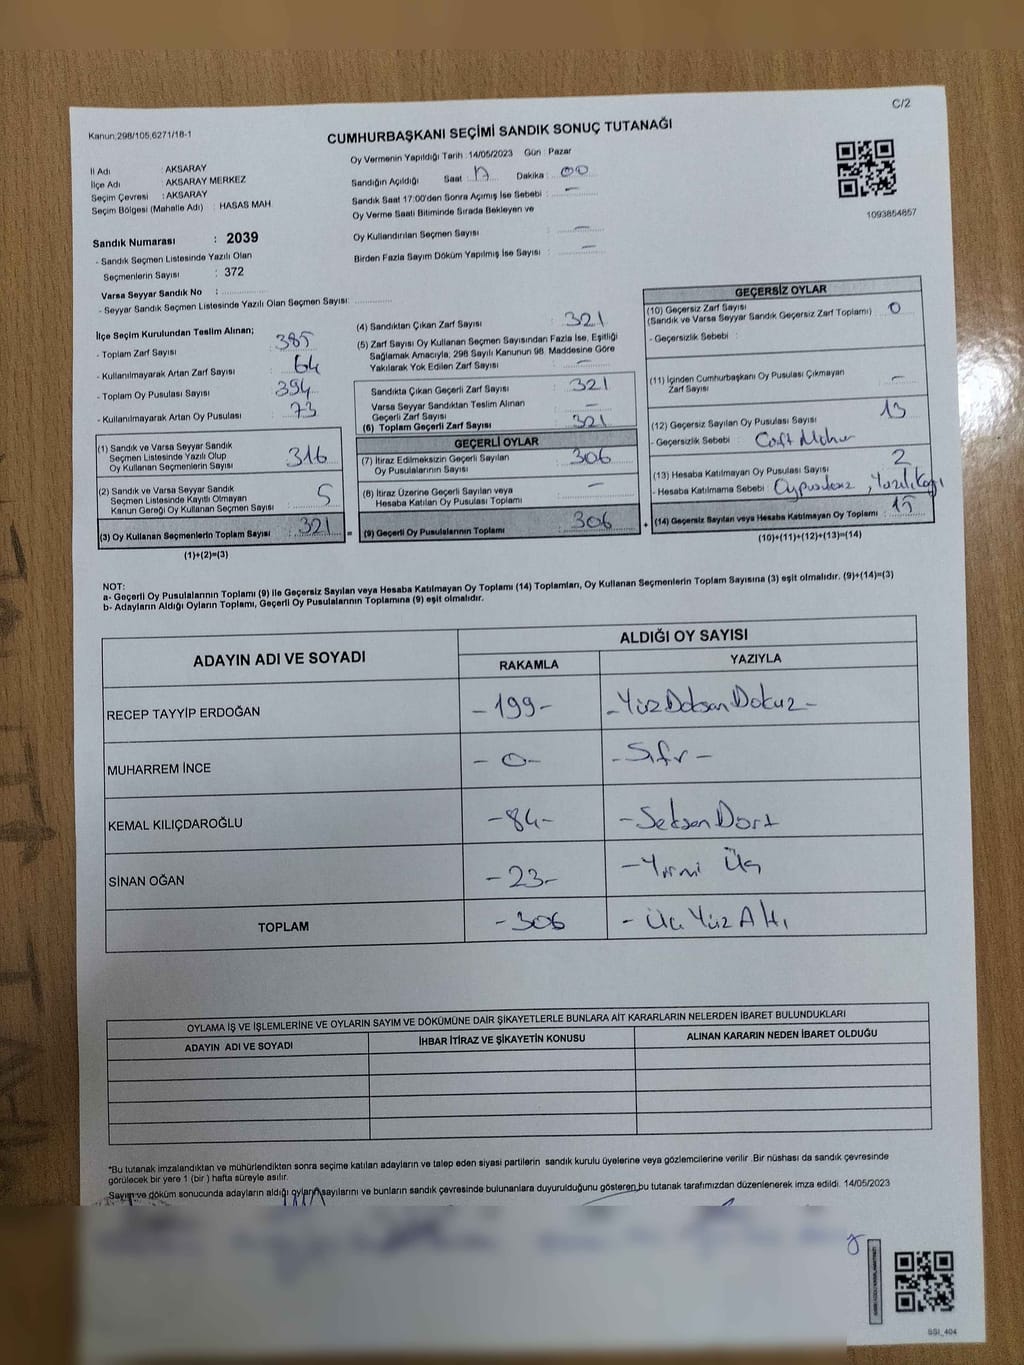 C/2
Kanun;298/105,6271/18-1
CUMHURBAŞKANI SEÇİMİ SANDIK SONUÇ TUTANAĞI
İl Adı : AKSARAY
İlçe Adı : AKSARAY MERKEZ
Seçim Çevresi : AKSARAY
Seçim Bölgesi (Mahalle Adı) : HASAS MAH.
Oy Vermenin Yapıldığı Tarih :14/05/2023 Gün : Pazar
Sandığın Açıldığı Saat 17 Dakika : 00
Sandık Saat 17:00'den Sonra Açımış İse Sebebi : -
Oy Verme Saati Bitiminde Sırada Bekleyen ve
Oy Kullandırılan Seçmen Sayısı : -
Birden Fazla Sayım Döküm Yapılmış İse Sayısı : -
1093854857
Sandık Numarası : 2039
- Sandık Seçmen Listesinde Yazılı Olan
Seçmenlerin Sayısı : 372
Varsa Seyyar Sandık No :
- Seyyar Sandık Seçmen Listesinde Yazılı Olan Seçmen Sayısı:
İlçe Seçim Kurulundan Teslim Alınan;
- Toplam Zarf Sayısı : 385
- Kullanılmayarak Artan Zarf Sayısı : 64
- Toplam Oy Pusulası Sayısı : 394
- Kullanılmayarak Artan Oy Pusulası : 73
(1) Sandık ve Varsa Seyyar Sandık
Seçmen Listesinde Yazılı Olup
Oy Kullanan Seçmenlerin Sayısı : 316
(2) Sandık ve Varsa Seyyar Sandık
Seçmen Listesinde Kayıtlı Olmayan
Kanun Gereği Oy Kullanan Seçmen Sayısı : 5
(3) Oy Kullanan Seçmenlerin Toplam Sayısı : 321
(1)+(2)=(3)
(4) Sandıktan Çıkan Zarf Sayısı : 321
(5) Zarf Sayısı Oy Kullanan Seçmen Sayısından Fazla İse, Eşitliği
Sağlamak Amacıyla, 298 Sayılı Kanunun 98. Maddesine Göre
Yakılarak Yok Edilen Zarf Sayısı : -
Sandıkta Çıkan Geçerli Zarf Sayısı : 321
Varsa Seyyar Sandıktan Teslim Alınan
Geçerli Zarf Sayısı : -
(6) Toplam Geçerli Zarf Sayısı : 321
GEÇERLİ OYLAR
(7) İtiraz Edilmeksizin Geçerli Sayılan
Oy Pusulalarının Sayısı : 306
(8) İtiraz Üzerine Geçerli Sayılan veya
Hesaba Katılan Oy Pusulası Toplamı : -
= (9) Geçerli Oy Pusulalarının Toplamı : 306 +
GEÇERSİZ OYLAR
(10) Geçersiz Zarf Sayısı
(Sandık ve Varsa Seyyar Sandık Geçersiz Zarf Toplamı) : 0
- Geçersizlik Sebebi :
(11) İçinden Cumhurbaşkanı Oy Pusulası Çıkmayan
Zarf Sayısı : -
(12) Geçersiz Sayılan Oy Pusulası Sayısı : 13
- Geçersizlik Sebebi : Çift Mühür
(13) Hesaba Katılmayan Oy Pusulası Sayısı : 2
- Hesaba Katılmama Sebebi :
(14) Geçersiz Sayılan veya Hesaba Katılmayan Oy Toplamı : 15
(10)+(11)+(12)+(13)=(14)
NOT:
a- Geçerli Oy Pusulalarının Toplamı (9) ile Geçersiz Sayılan veya Hesaba Katılmayan Oy Toplamı (14) Toplamları, Oy Kullanan Seçmenlerin Toplam Sayısına (3) eşit olmalıdır. (9)+(14)=(3)
b- Adayların Aldığı Oyların Toplamı, Geçerli Oy Pusulalarının Toplamına (9) eşit olmalıdır.
ADAYIN ADI VE SOYADI
ALDIĞI OY SAYISI
RAKAMLA YAZIYLA
RECEP TAYYİP ERDOĞAN -199- -Yüz Doksan Dokuz-
MUHARREM İNCE -0- -Sıfır-
KEMAL KILIÇDAROĞLU -84- -Seksen Dört
SİNAN OĞAN -23- -Yirmi Üç
TOPLAM -306 -Üç Yüz Altı
OYLAMA İŞ VE İŞLEMLERİNE VE OYLARIN SAYIM VE DÖKÜMÜNE DAİR ŞİKAYETLERLE BUNLARA AİT KARARLARIN NELERDEN İBARET BULUNDUKLARI
ADAYIN ADI VE SOYADI İHBAR İTİRAZ VE ŞİKAYETİN KONUSU ALINAN KARARIN NEDEN İBARET OLDUĞU
*Bu tutanak imzalandıktan ve mühürlendikten sonra seçime katılan adayların ve talep eden siyasi partilerin sandık kurulu üyelerine veya gözlemcilerine verilir .Bir nüshası da sandık çevresinde
görülecek bir yere 1 (bir ) hafta süreyle asılır.
Sayım ve döküm sonucunda adayların aldığı oyların sayılarını ve bunların sandık çevresinde bulunanlara duyurulduğunu gösteren bu tutanak tarafımızdan düzenlenerek imza edildi. 14/05/2023
SSI_404